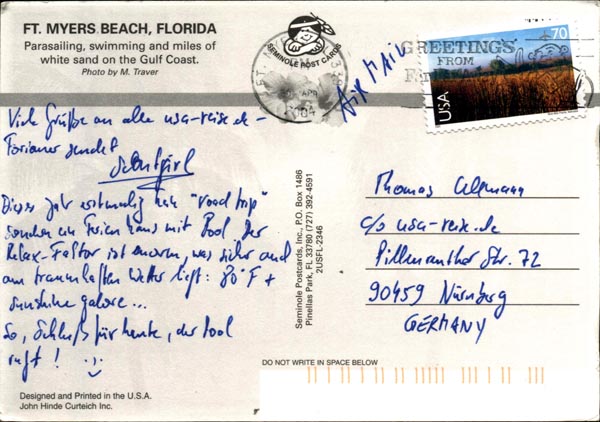 FT. MYERS BEACH, FLORIDA
Parasailing, swimming and miles of
white sand on the Gulf Coast.
Photo by M. Traver
SEMINOLE POST CARDS
AIR MAIL
GREETINGS
FROM
70
USA
Viele Grüße an alle usa-reise.de-
Forianer sendet
Dieses Jahr erstmalig kein "road trip"
sondern ein Ferienhaus mit Pool. Der
Relax-Faktor ist enorm, was sicher auch
am traumhaften Wetter liegt: 80°F +
sunshine galore...
So, Schluß für heute, der Pool
ruft!
Seminole Postcards, Inc., P.O. Box 1486
Pinellas Park, FL 33780 (727) 392-4591
2USFL-2346
Thomas
c/o usa-reise.de
Pillenreuther Str. 72
90459 Nürnberg
GERMANY
DO NOT WRITE IN SPACE BELOW
Designed and Printed in the U.S.A.
John Hinde Curteich Inc.